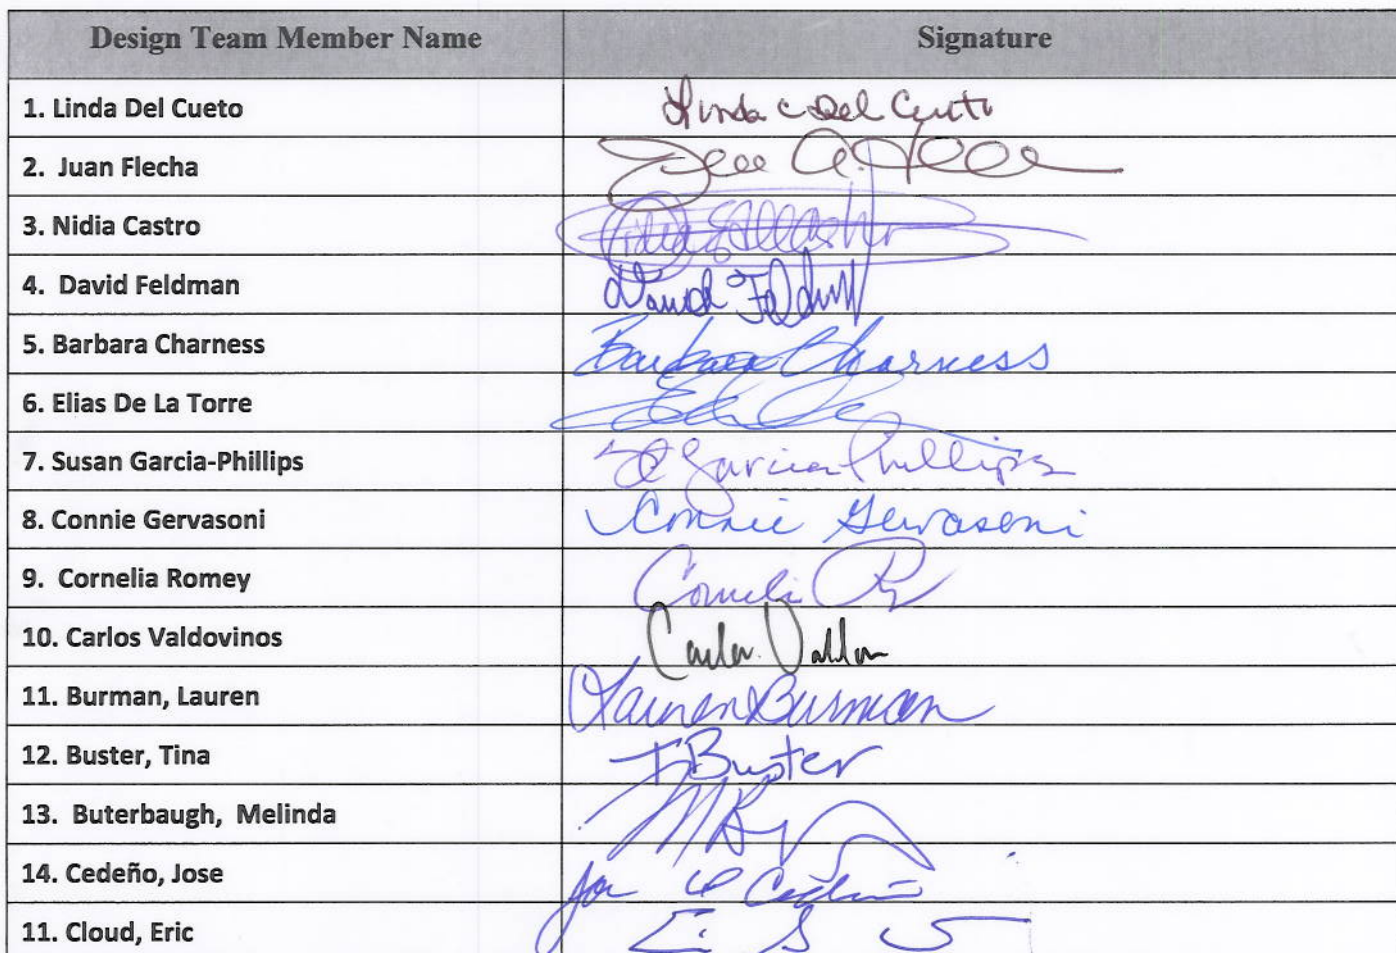 Design Team Member Name Signature
1. Linda Del Cueto Linda C Del Cueto
2. Juan Flecha
3. Nidia Castro
4. David Feldman David Feldman
5. Barbara Charness Barbara Charness
6. Elias De La Torre
7. Susan Garcia-Phillips Garcia Phillips
8. Connie Gervasoni Connie Gervasoni
9. Cornelia Romey
10. Carlos Valdovinos
11. Burman, Lauren Lauren Burman
12. Buster, Tina T Buster
13. Buterbaugh, Melinda
14. Cedeño, Jose
11. Cloud, Eric